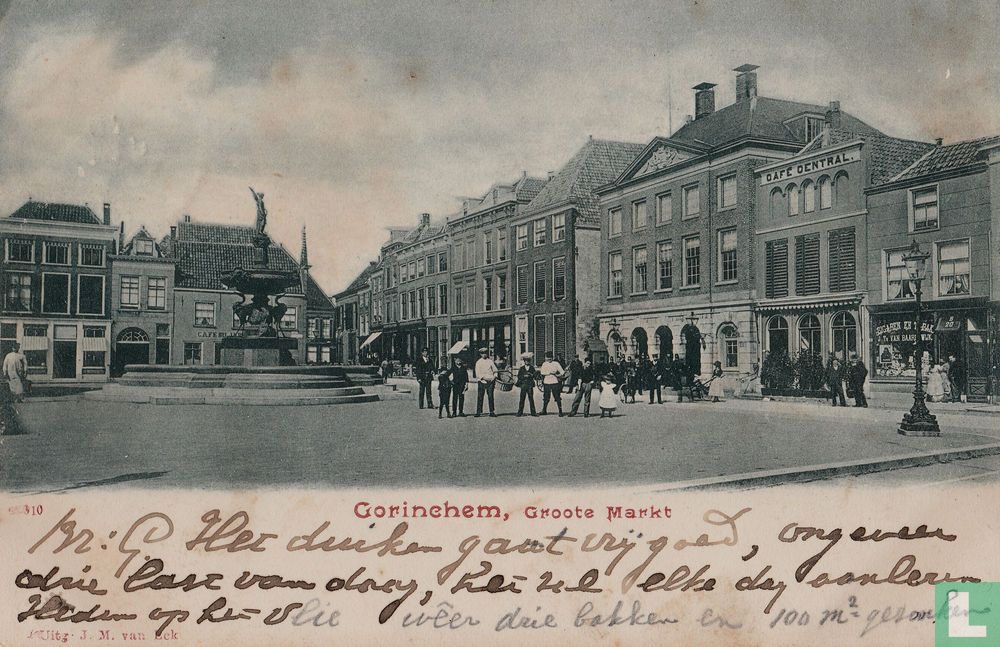 CAFÉ CENTRAL.
CAFÉ
SIGAREN EN TABAK
310
Gorinchem, Groote Markt
Br: G Het duiken gaat vrij goed, ongeveer
drie last van daag, het zal elke dag
Heden op het Vlie wéer drie bakken en 100 m² gezonken
Uitg. J. M. van Eck
L